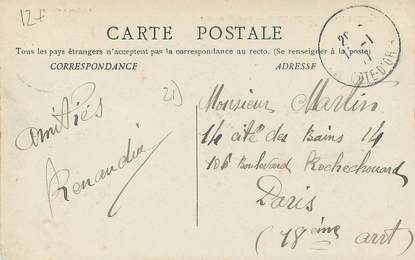 127
CARTE POSTALE
Tous les pays étrangers n'acceptent pas la correspondance au recto. (Se renseigner à la poste)
CORRESPONDANCE
ADRESSE
CÔTE-D'OR
21)
amitiés
Renaudin
Monsieur Martin
14 cité des Bains 14
106 Boulevard Rochechouard
Paris
(18ème arrt)